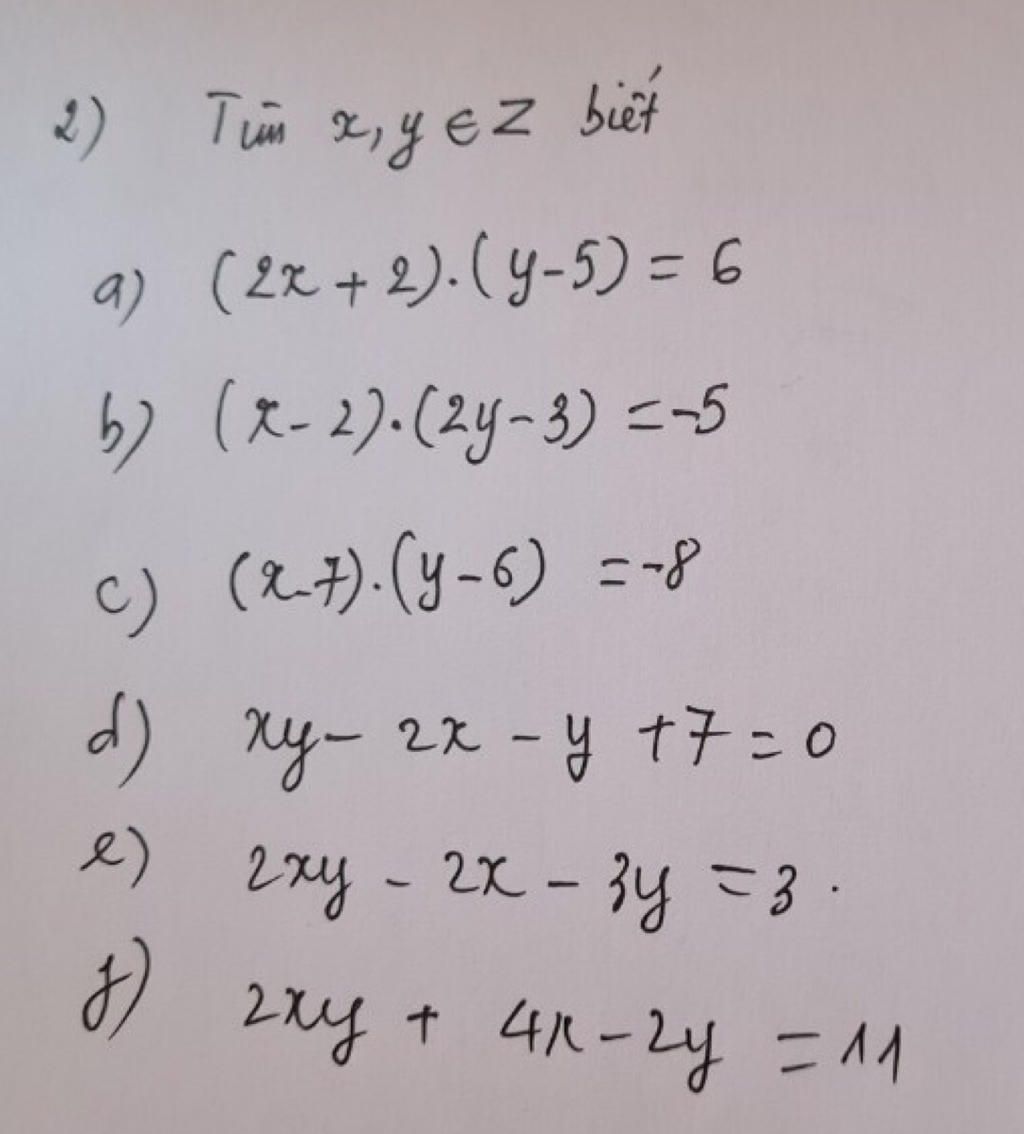 2) Tìm x, y ∈ Z biết
a) (2x + 2).(y-5) = 6
b) (x - 2).(2y - 3) = -5
c) (x-7).(y-6) = -8
d) xy - 2x - y + 7 = 0
e) 2xy - 2x - 3y = 3.
f) 2xy + 4x - 2y = 11